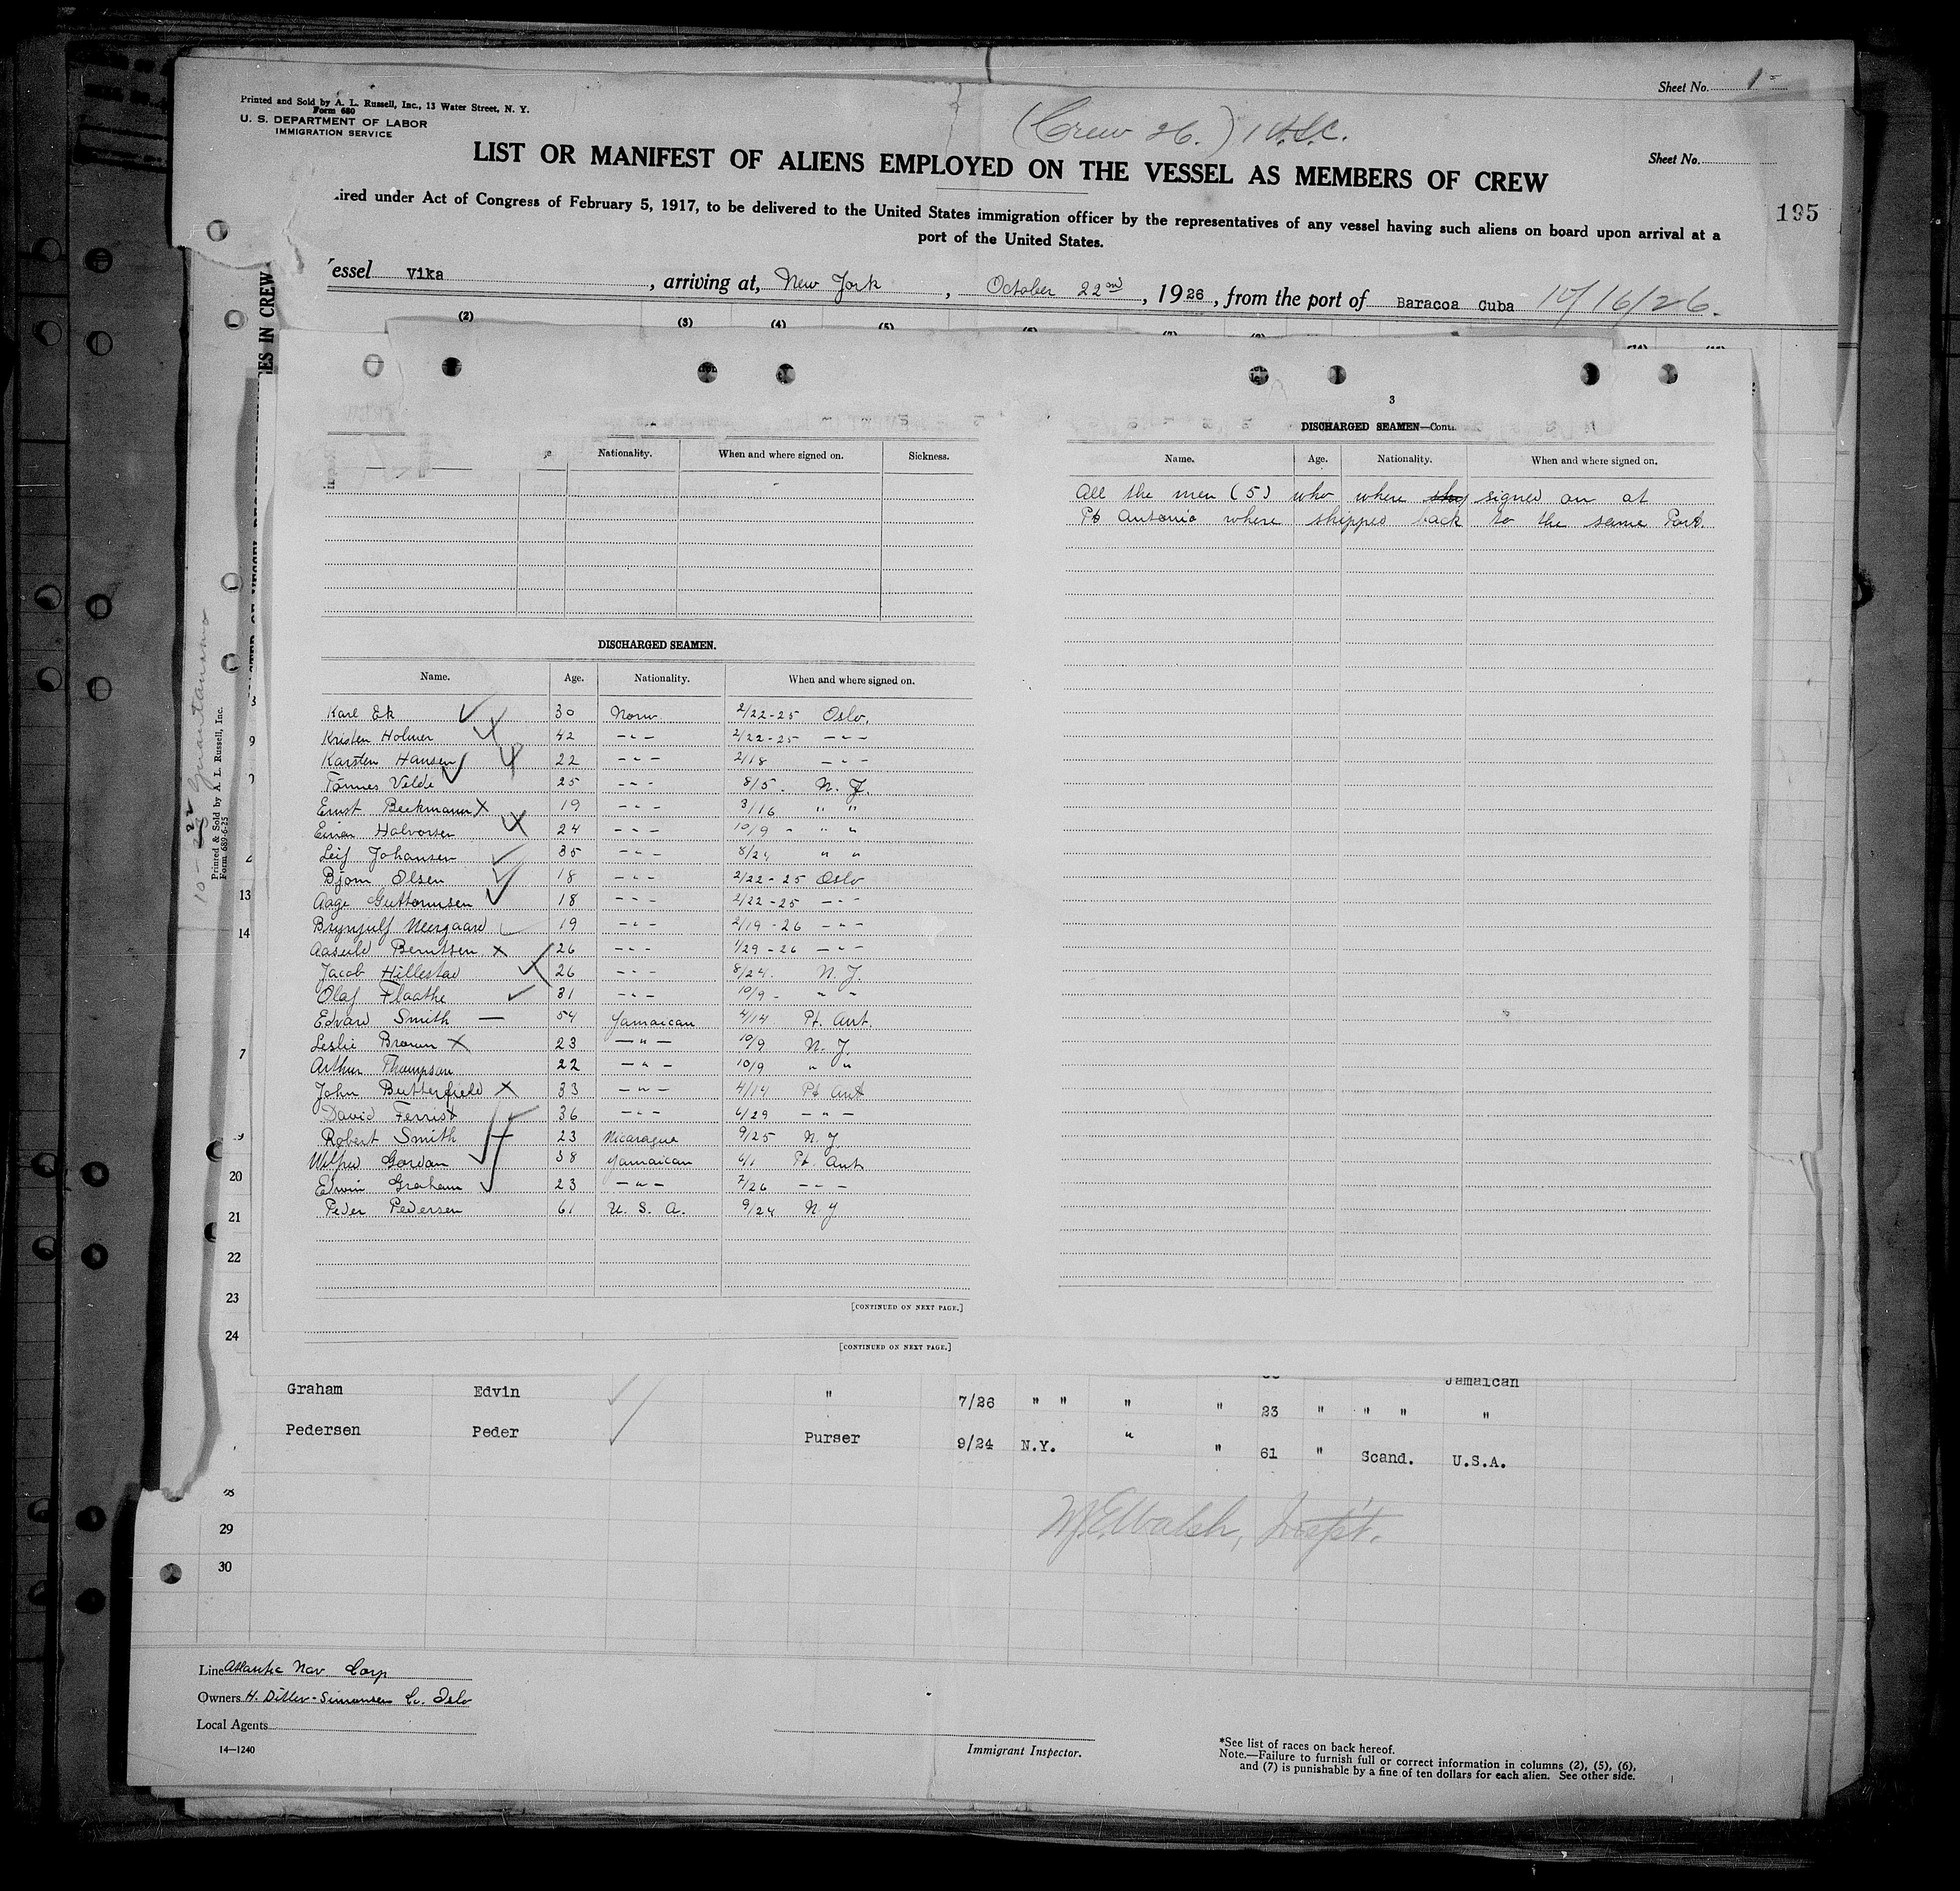 Sheet No. 1
Printed and Sold by A. L. Russell, Inc., 13 Water Street, N. Y.
Form 680
U. S. DEPARTMENT OF LABOR
IMMIGRATION SERVICE
(Crew 26.) 1 U.S.C.
LIST OR MANIFEST OF ALIENS EMPLOYED ON THE VESSEL AS MEMBERS OF CREW
Sheet No.
195
ired under Act of Congress of February 5, 1917, to be delivered to the United States immigration officer by the representatives of any vessel having such aliens on board upon arrival at a
port of the United States.
essel Vika, arriving at, New York, October 22nd, 1926, from the port of Baracoa Cuba 10/16/26.
(2) (3) (4) (5)
3
DISCHARGED SEAMEN—Cont
Nationality. When and where signed on. Sickness.
Name. Age. Nationality. When and where signed on.
All the men (5) who where signed on at
Pt Antonio where shipped back to the same Port.
DISCHARGED SEAMEN.
Name. Age. Nationality. When and where signed on.
Karl Ek 30 Norw. 2/22-25 Oslo.
Kristen Holmer 42 -"- 2/22-25 -"-
Karsten Hansen 22 -"- 2/18 -"-
Tønnes Velde 25 -"- 8/5. N.Y.
Ernst Beekmann X 19 -"- 3/16 " "
Einar Halvorsen 24 -"- 10/9 - " "
Leif Johansen 35 -"- 8/24 " "
Bjørn Olsen 18 -"- 2/22-25 Oslo
Aage Guttormsen 18 -"- 2/22-25 -"-
Brynjulf Neergaard 19 -"- 2/19-26 -"-
Berntsen X 26 -"- 1/29-26 -"-
Jacob Hillestad 26 -"- 8/24. N.Y.
Olaf Flaathe 31 -"- 10/9 - " "
Edvard Smith — 54 Jamaican 4/14 Pt. Ant.
Leslie Brown X 23 -"- 10/9 N.Y.
Arthur Thompson 22 -"- 10/9 " "
John Butterfield X 33 -"- 4/14 Pt Ant
David Ferrist 36 -"- 6/29 -"-
Robert Smith 23 Nicaragua 9/25 N.Y
Wilfred Gordon 38 Jamaican 6/1 Pt. Ant.
Edwin Graham 23 -"- 7/26 -"-
Peder Pedersen 61 U.S.A. 9/24 N.Y
[CONTINUED ON NEXT PAGE.]
[CONTINUED ON NEXT PAGE.]
ES IN CREW
10-22 Guantanamo
Printed & Sold by A. L. Russell, Inc.
Form 689-6-25
9
13
14
7
20
21
22
23
24
Jamaican
Graham Edvin " 7/26 " " " " 23 " " " "
Pedersen Peder Purser 9/24 N.Y. " " 61 " Scand. U.S.A.
29
30
Walsh, Insp't.
Line Atlantic Nav. Corp
Owners H. Ditlev-Simonsen Co. Oslo
Local Agents
14—1240
Immigrant Inspector.
*See list of races on back hereof.
Note.—Failure to furnish full or correct information in columns (2), (5), (6),
and (7) is punishable by a fine of ten dollars for each alien. See other side.